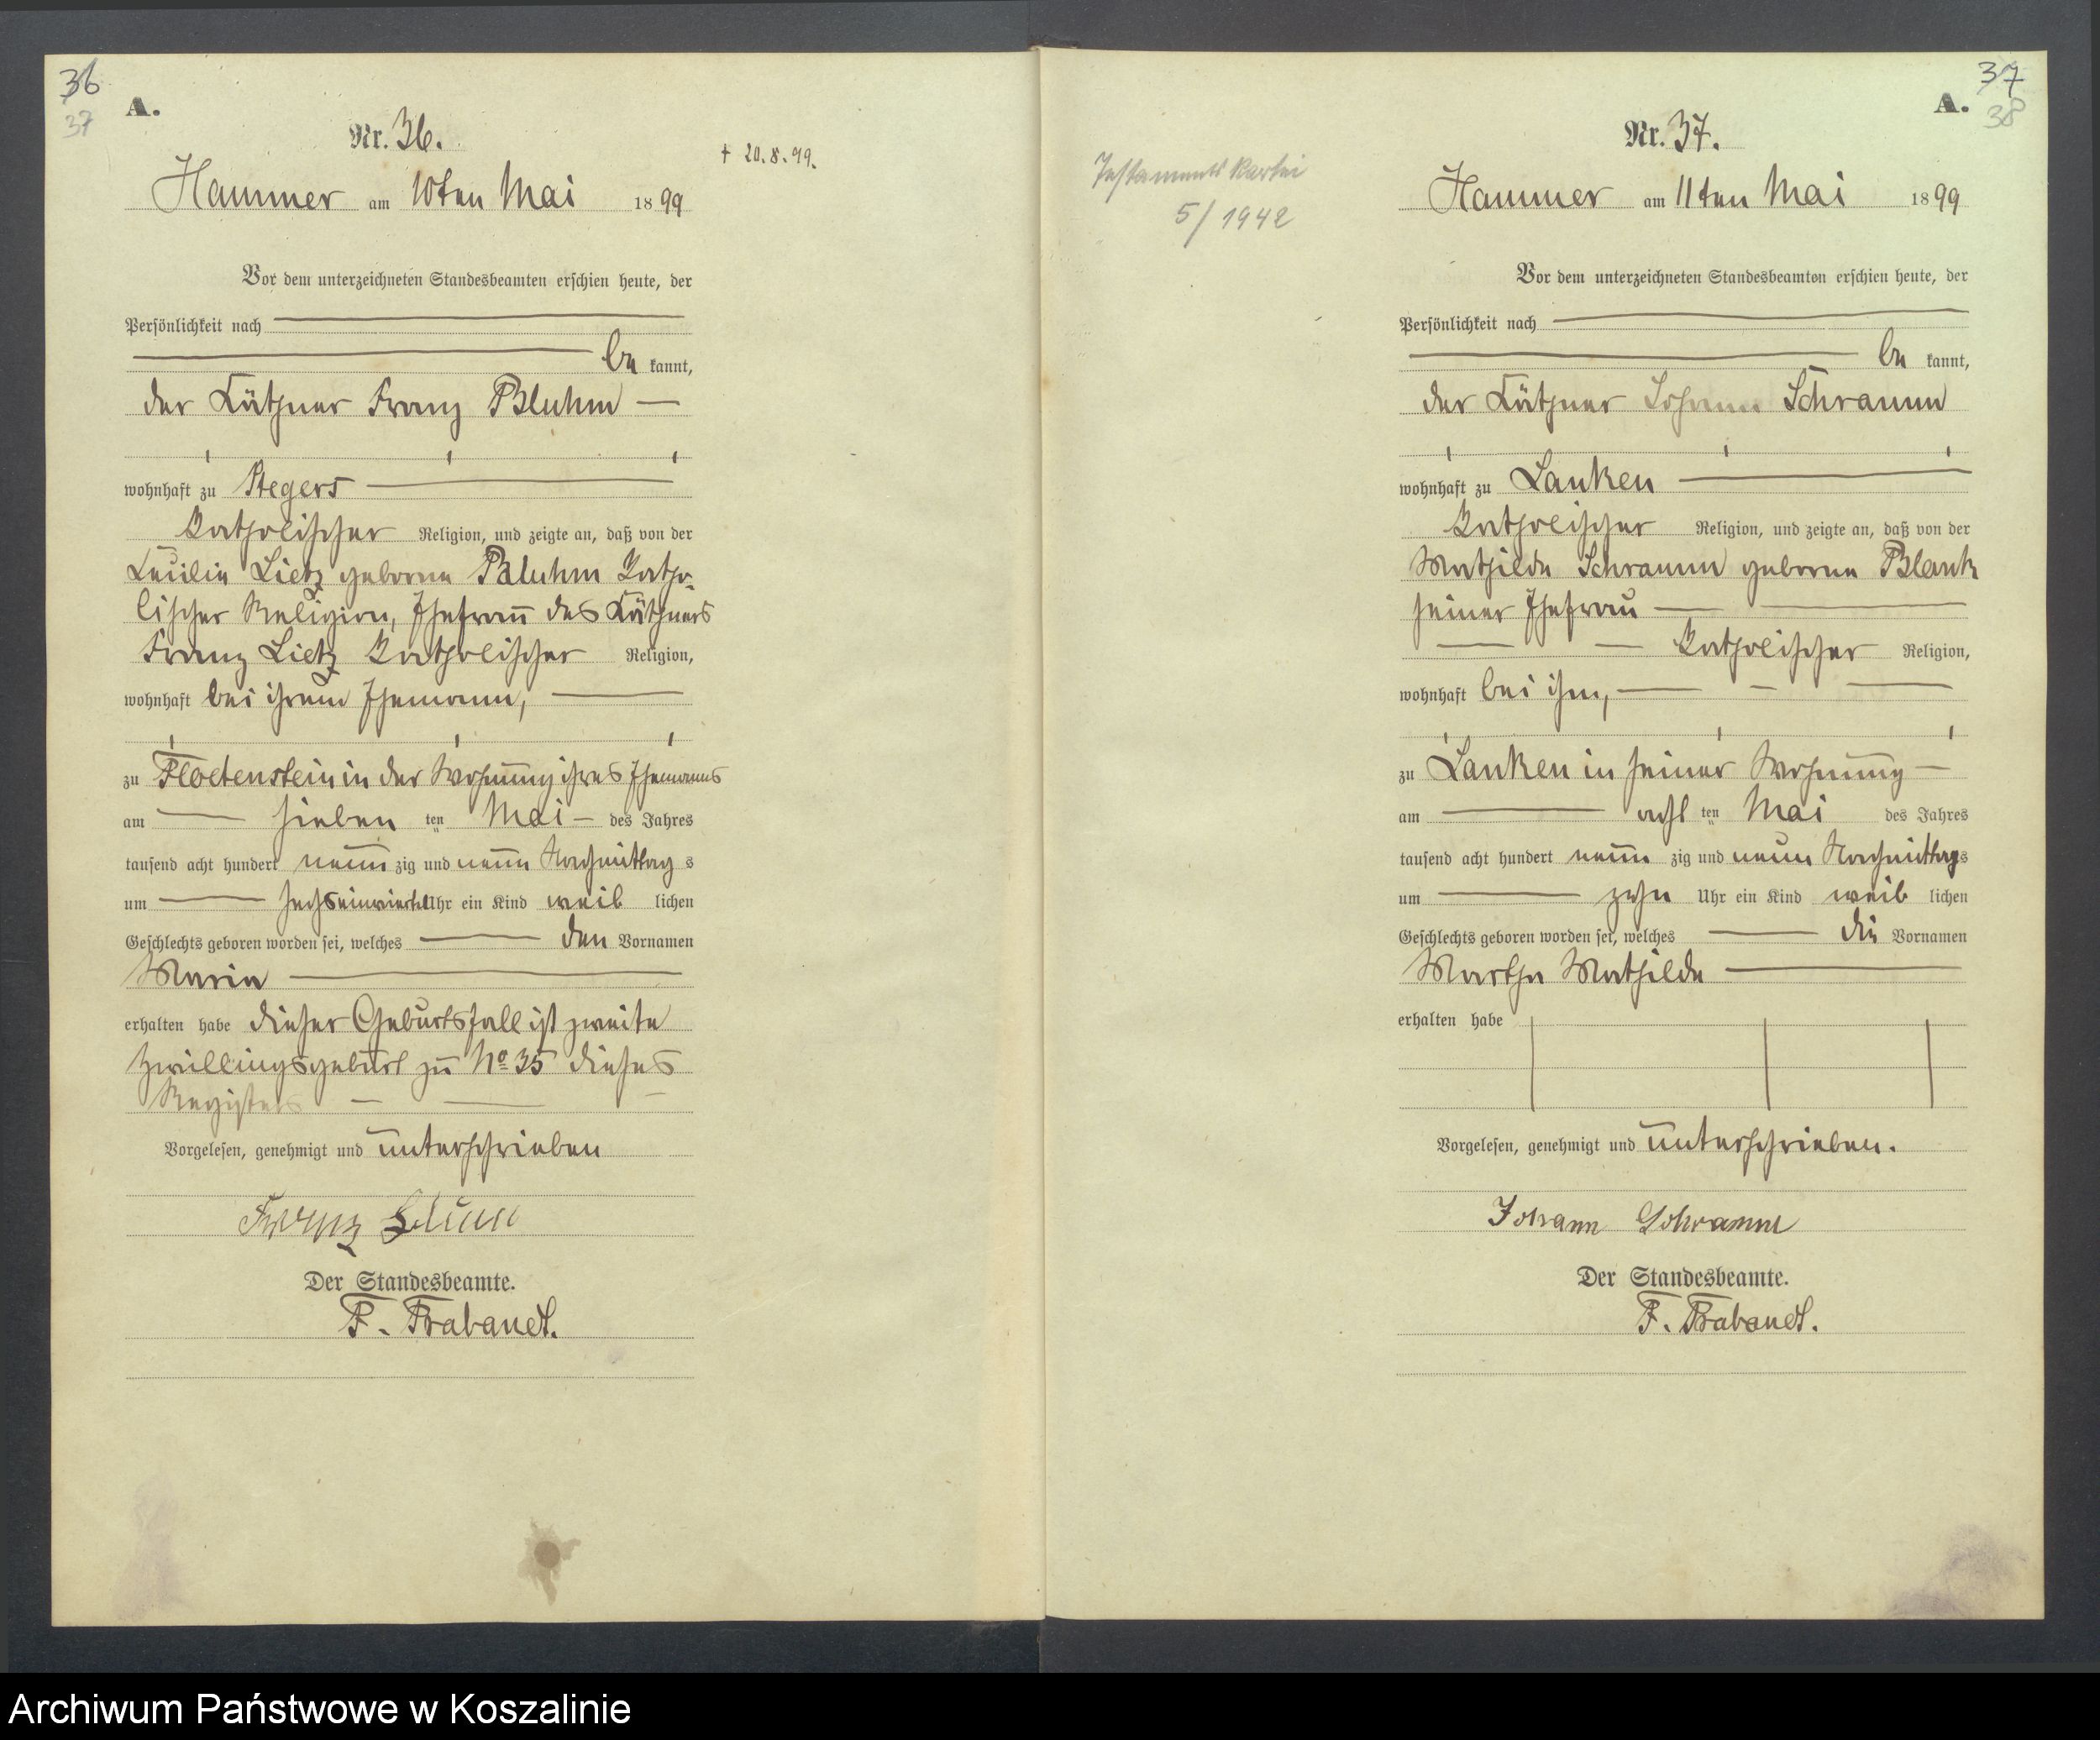 36
37
A.
Nr. 36.
† 20.8.99.
Hammer am 10ten Mai 1899
Vor dem unterzeichneten Standesbeamten erschien heute, der
Persönlichkeit nach
be kannt,
der Käthner Franz Bluhm
wohnhaft zu Stegers
katholischer Religion, und zeigte an, daß von der
Cäcilie Lietz geborne Bluhm katho-
lischer Religion, Ehefrau des Käthners
Franz Lietz katholischer Religion,
wohnhaft bei ihrem Ehemann,
zu Floetenstein in der Wohnung ihres Ehemanns
am sieben ten Mai des Jahres
tausend acht hundert neun zig und neun Nachmittag s
um sechseinviertel Uhr ein Kind weib lichen
Geschlechts geboren worden sei, welches den Vornamen
Maria
erhalten habe dieser Geburtsfall ist zweite
Zwillingsgeburt zu No 35 dieses
Registers
Vorgelesen, genehmigt und unterschrieben
Franz
Der Standesbeamte.
F. Brabandt.
37
38
A.
Nr. 37.
Testaments Kartei
5/1942
Hammer am 11ten Mai 1899
Vor dem unterzeichneten Standesbeamten erschien heute, der
Persönlichkeit nach
be kannt,
der Käthner Johann Schramm
wohnhaft zu Lanken
katholischer Religion, und zeigte an, daß von der
Mathilde Schramm geborne Blank
seiner Ehefrau
katholischer Religion,
wohnhaft bei ihm,
zu Lanken in seiner Wohnung
am acht ten Mai des Jahres
tausend acht hundert neun zig und neun Nachmittags
um zehn Uhr ein Kind weib lichen
Geschlechts geboren worden sei, welches die Vornamen
Martha Mathilde
erhalten habe
Vorgelesen, genehmigt und unterschrieben.
Johann Schramm
Der Standesbeamte.
F. Brabandt.
Archiwum Państwowe w Koszalinie